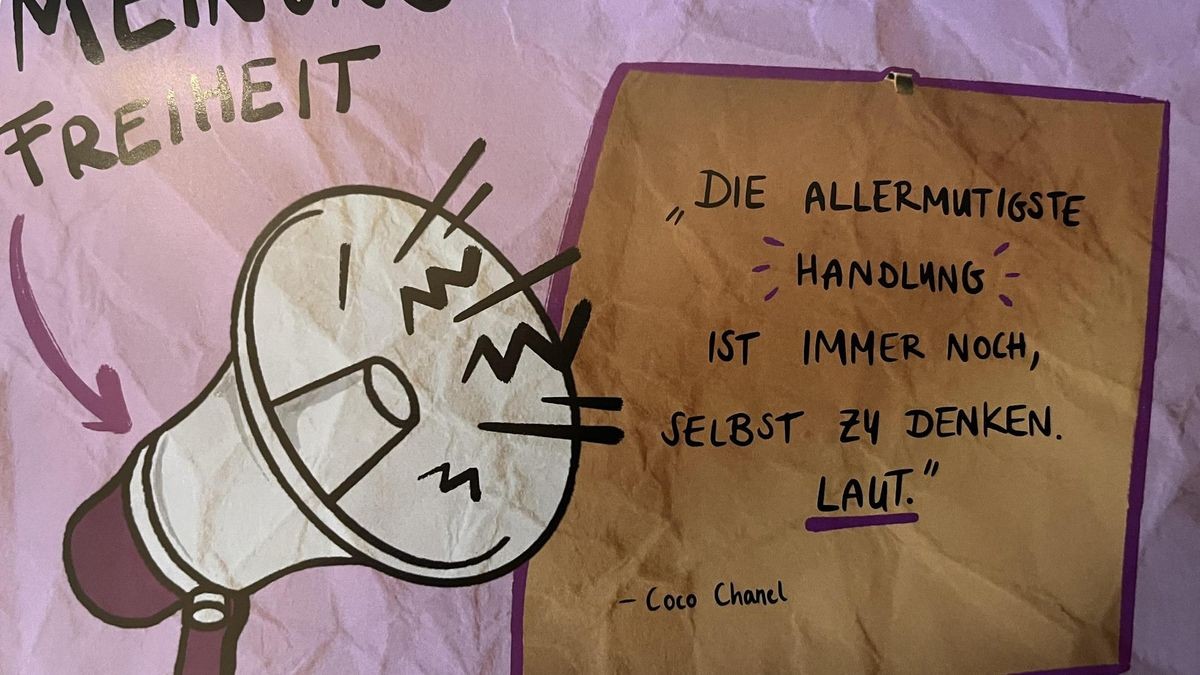 FREIHEIT
„DIE ALLERMUTIGSTE
HANDLUNG
IST IMMER NOCH,
SELBST ZU DENKEN.
LAUT."
– Coco Chanel